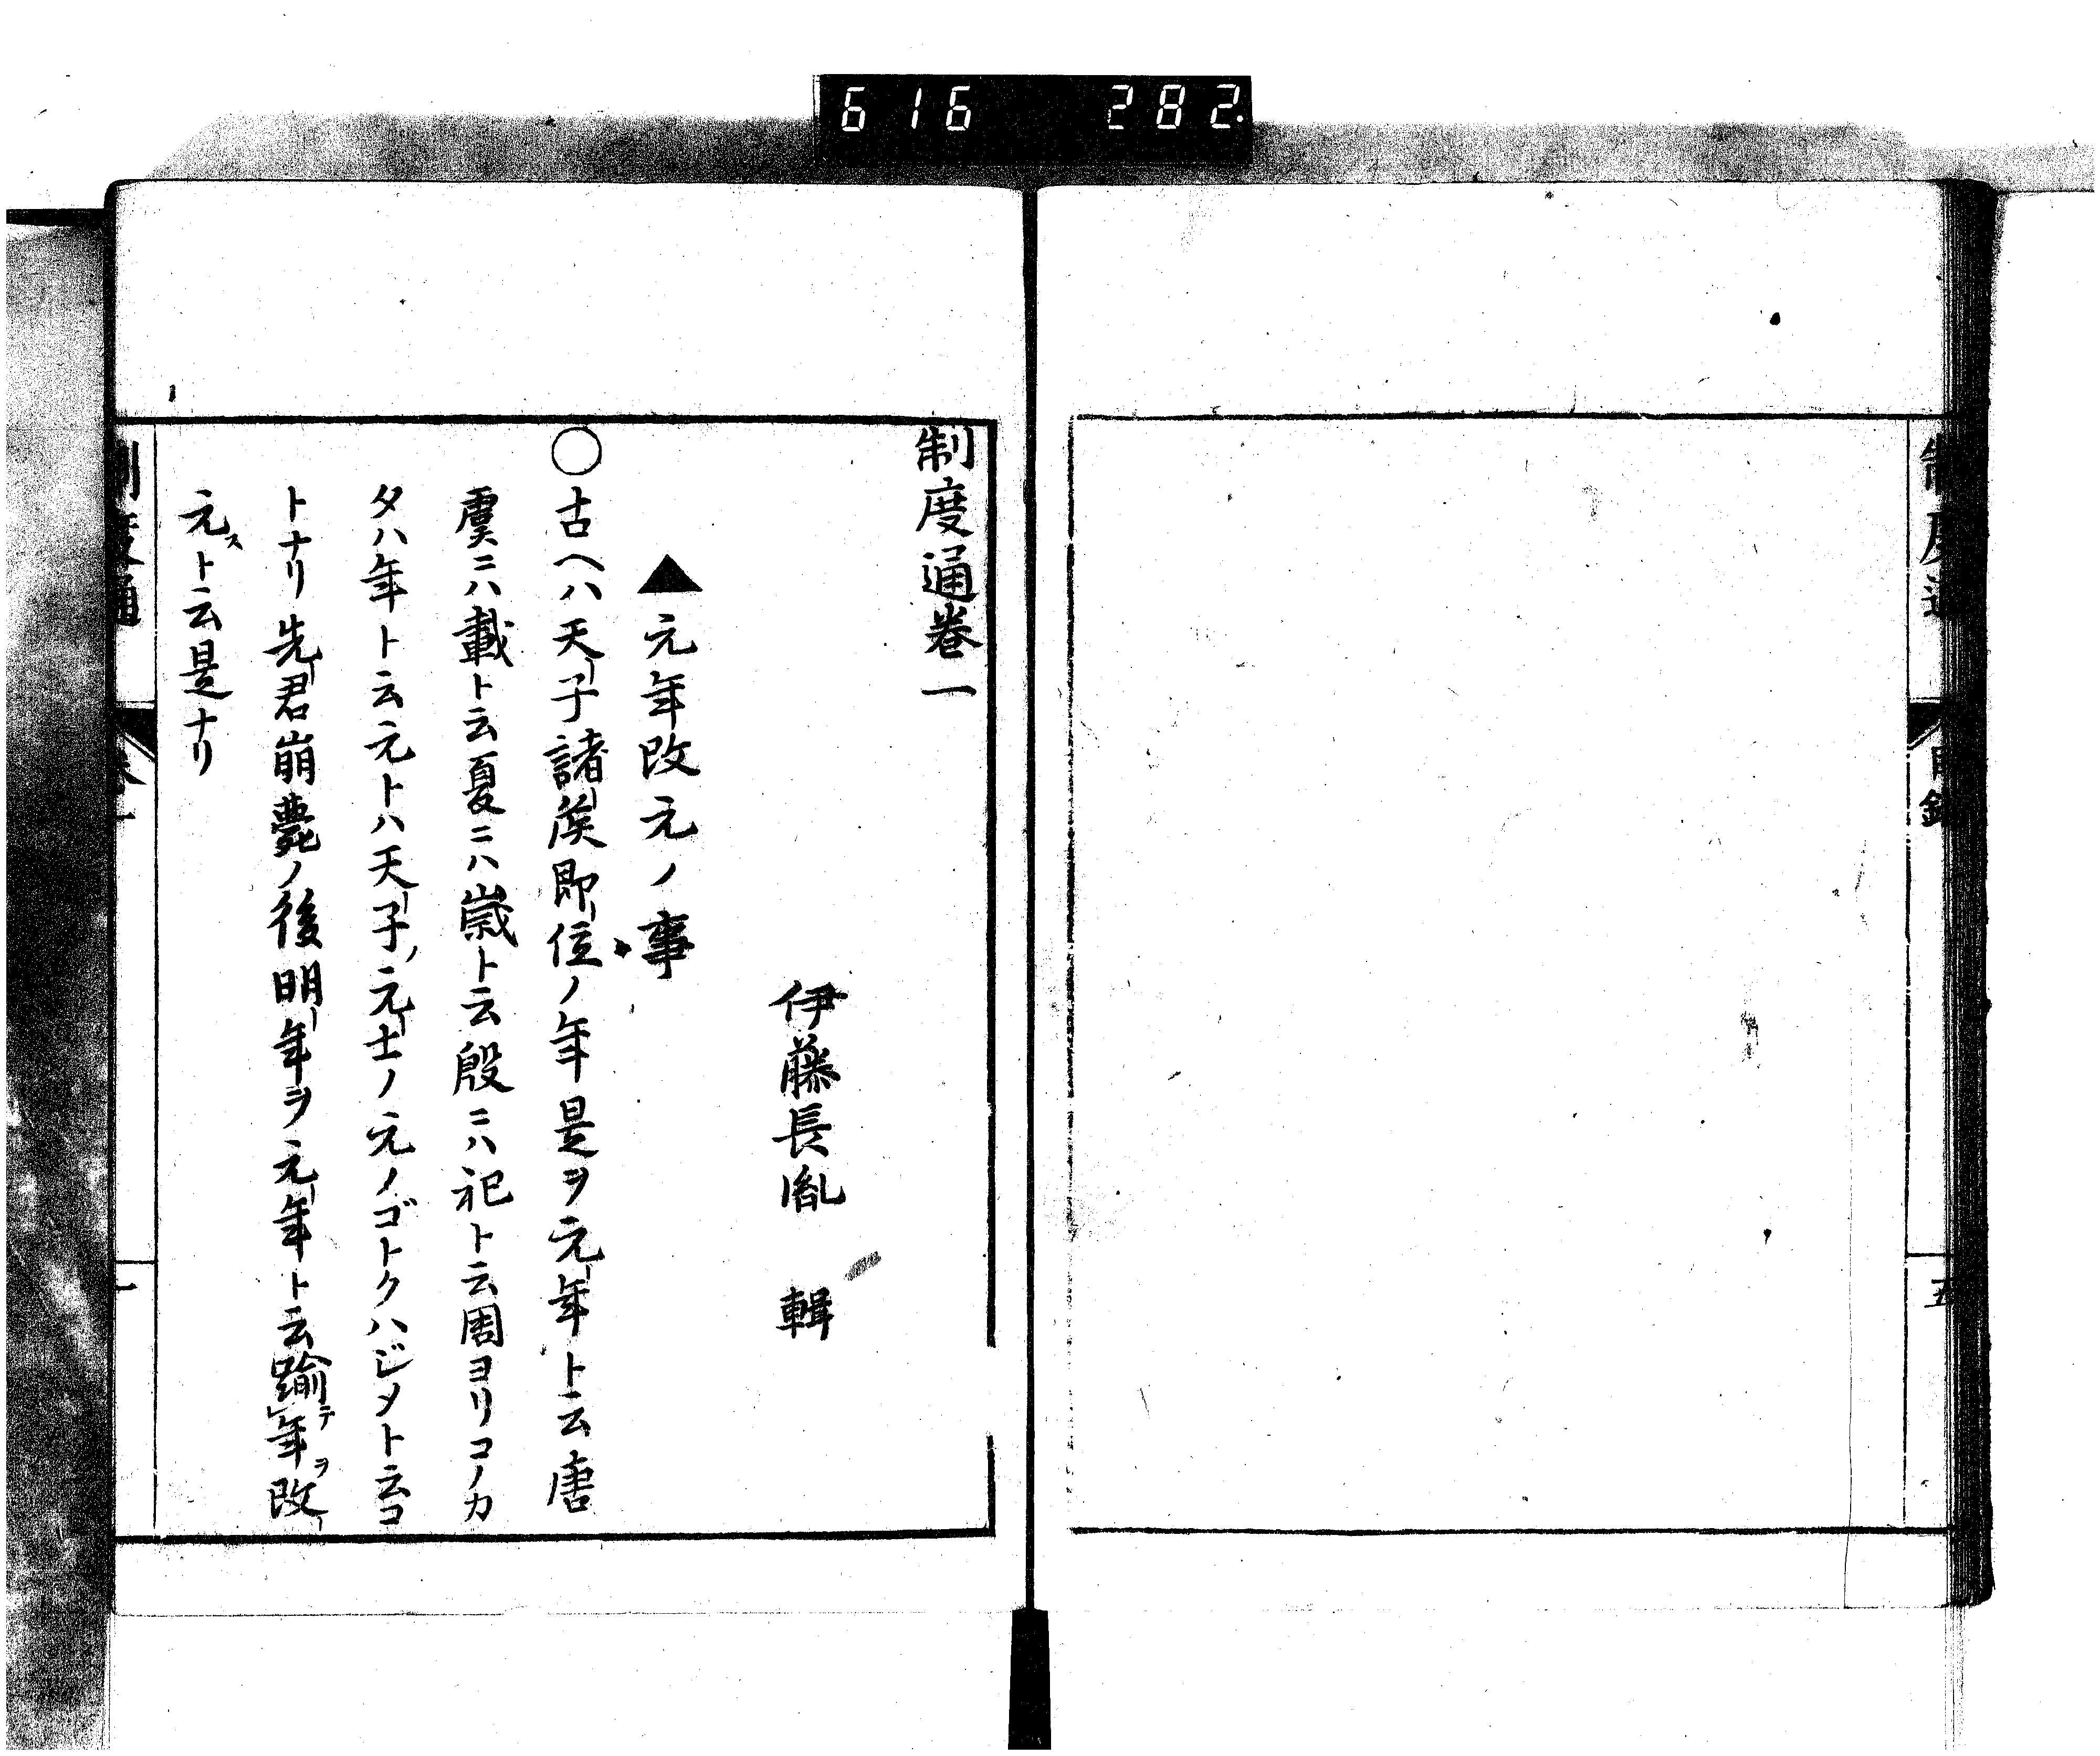 616 282
制度通
目録
五
制度通卷一
伊藤長胤 輯
▲元年改元ノ事
○古ヘハ天子諸侯即位ノ年是ヲ元年ト云唐
虞ニハ載ト云夏ニハ歳ト云殷ニハ祀ト云周ヨリコノカ
タハ年ト云元トハ天子ノ元士ノ元ノゴトクハジメト云コ
トナリ先君崩薨ノ後明年ヲ元年ト云踰テ年ヲ改
元スト云是ナリ
制度通
卷一
一